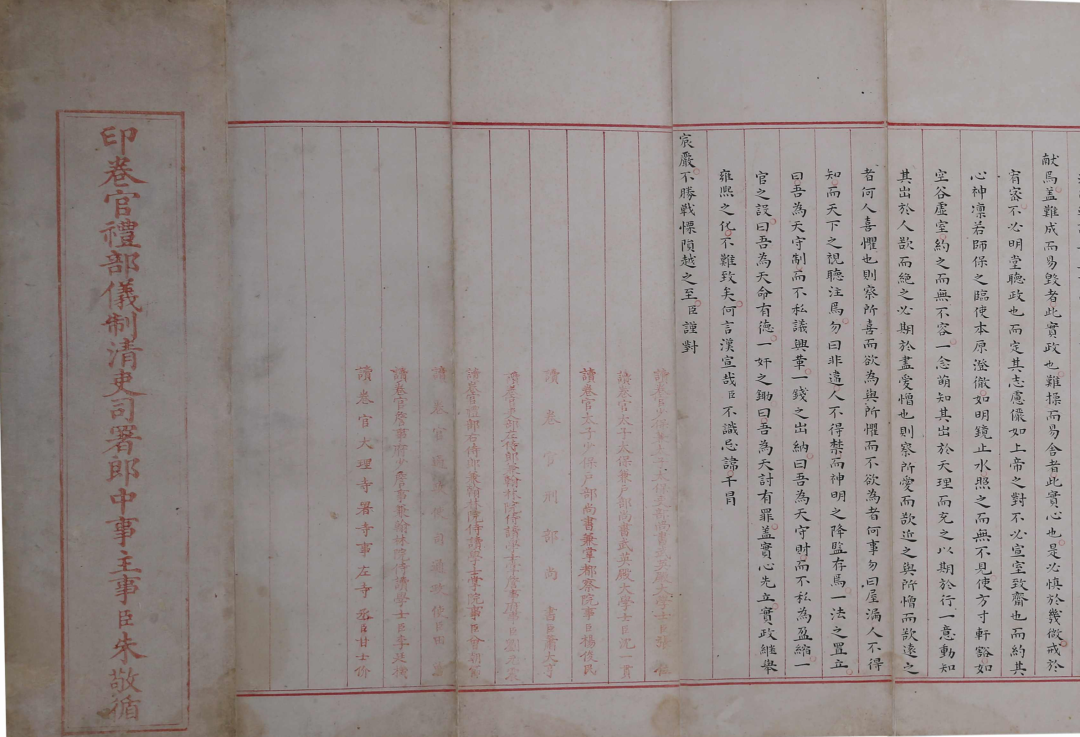 献焉蓋難成而易毀者此實政也難操而易舍者此實心也是必慎於幾微戒於
宥密不必明堂聽政也而定其志慮儼如上帝之對不必宣室致齋也而約其
心神凜若師保之臨使本原澄徹如明鏡止水照之而無不見使方寸軒豁如
空谷虛室約之而無不容一念萌知其出於天理而充之以期於行一意動知
其出於人欲而絕之必期於盡愛憎也則察所愛而欲近之與所憎而欲遠之
者何人喜懼也則察所喜而欲為與所懼而不欲為者何事勿曰屋漏人不得
知而天下之視聽注焉勿曰非違人不得禁而神明之降監存焉一法之置立
曰吾為天守制而不私議興革一錢之出納曰吾為天守財而不私為盈縮一
官之設曰吾為天命有德一奸之鋤曰吾為天討有罪蓋實心先立實政繼舉
雍熙之化不難致矣何言漢宣哉臣不識忌諱干冒
宸嚴不勝戰慄隕越之至臣謹對
讀卷官太子太保兼戶部尚書武英殿大學士臣沈一貫
讀卷官太子少保戶部尚書兼掌都察院事臣楊俊民
讀卷官刑部尚書臣蕭大亨
讀卷官吏部左侍郎兼翰林院侍讀學士
讀卷官禮部右侍郎兼翰林院侍讀學士掌院事臣曾朝節
讀卷官通政使司通政使臣田
讀卷官詹事府少詹事兼翰林院侍讀學士臣李廷機
讀卷官大理寺署寺事左寺丞臣甘士价
印卷官禮部儀制清吏司署郎中事主事臣朱敬循